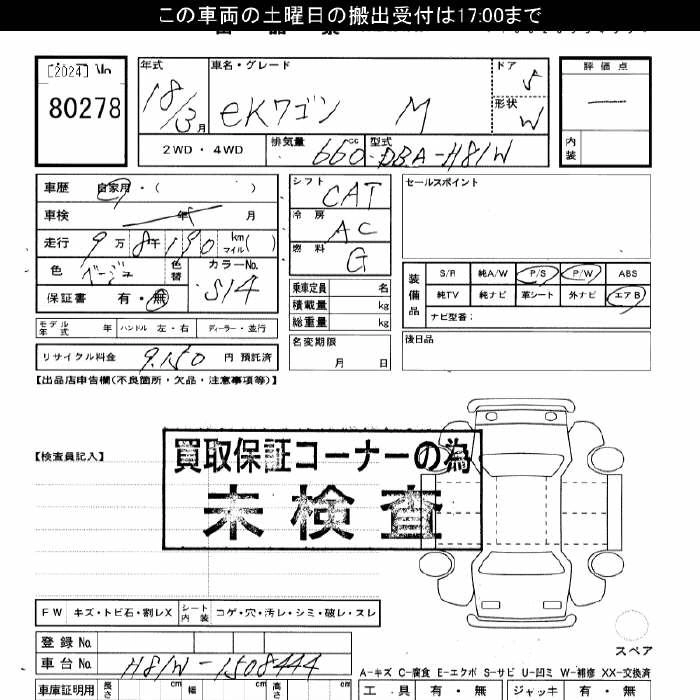 この車両の土曜日の搬出受付は17:00まで
[2024]
80278
年式
18/3月
車名・グレード
eKワゴン M
ドア
5
形状
W
評価点
内装
2WD・4WD
排気量
660cc
型式
DBA-H81W
車歴 自家用・( )
車検 年 月
走行 9万8千190 km マイル( )
色 ベージュ 色替 カラーNo. S14
保証書 有・無
シフト CAT
冷房 AC
燃料 G
乗車定員 名
積載量 kg
総重量 kg
セールスポイント
装備品
S/R 純A/W P/S P/W ABS
純TV 純ナビ 革シート 外ナビ エアB
ナビ型番：
モデル年式 年 ハンドル 左・右 ディーラー・並行
リサイクル料金 9,150 円 預託済
名変期限
月 日
後日品
【出品店申告欄(不良箇所・欠品・注意事項等)】
【検査員記入】
買取保証コーナーの為
未検査
FW キズ・トビ石・割レX シート内装 コゲ・穴・汚レ・シミ・破レ・スレ
スペア
登録No
車台No H81W-1508444
車庫証明用 長さ cm 幅 cm 高さ cm
A-キズ C-腐食 E-エクボ S-サビ U-凹ミ W-補修 XX-交換済
工具 有・無 ジャッキ 有・無